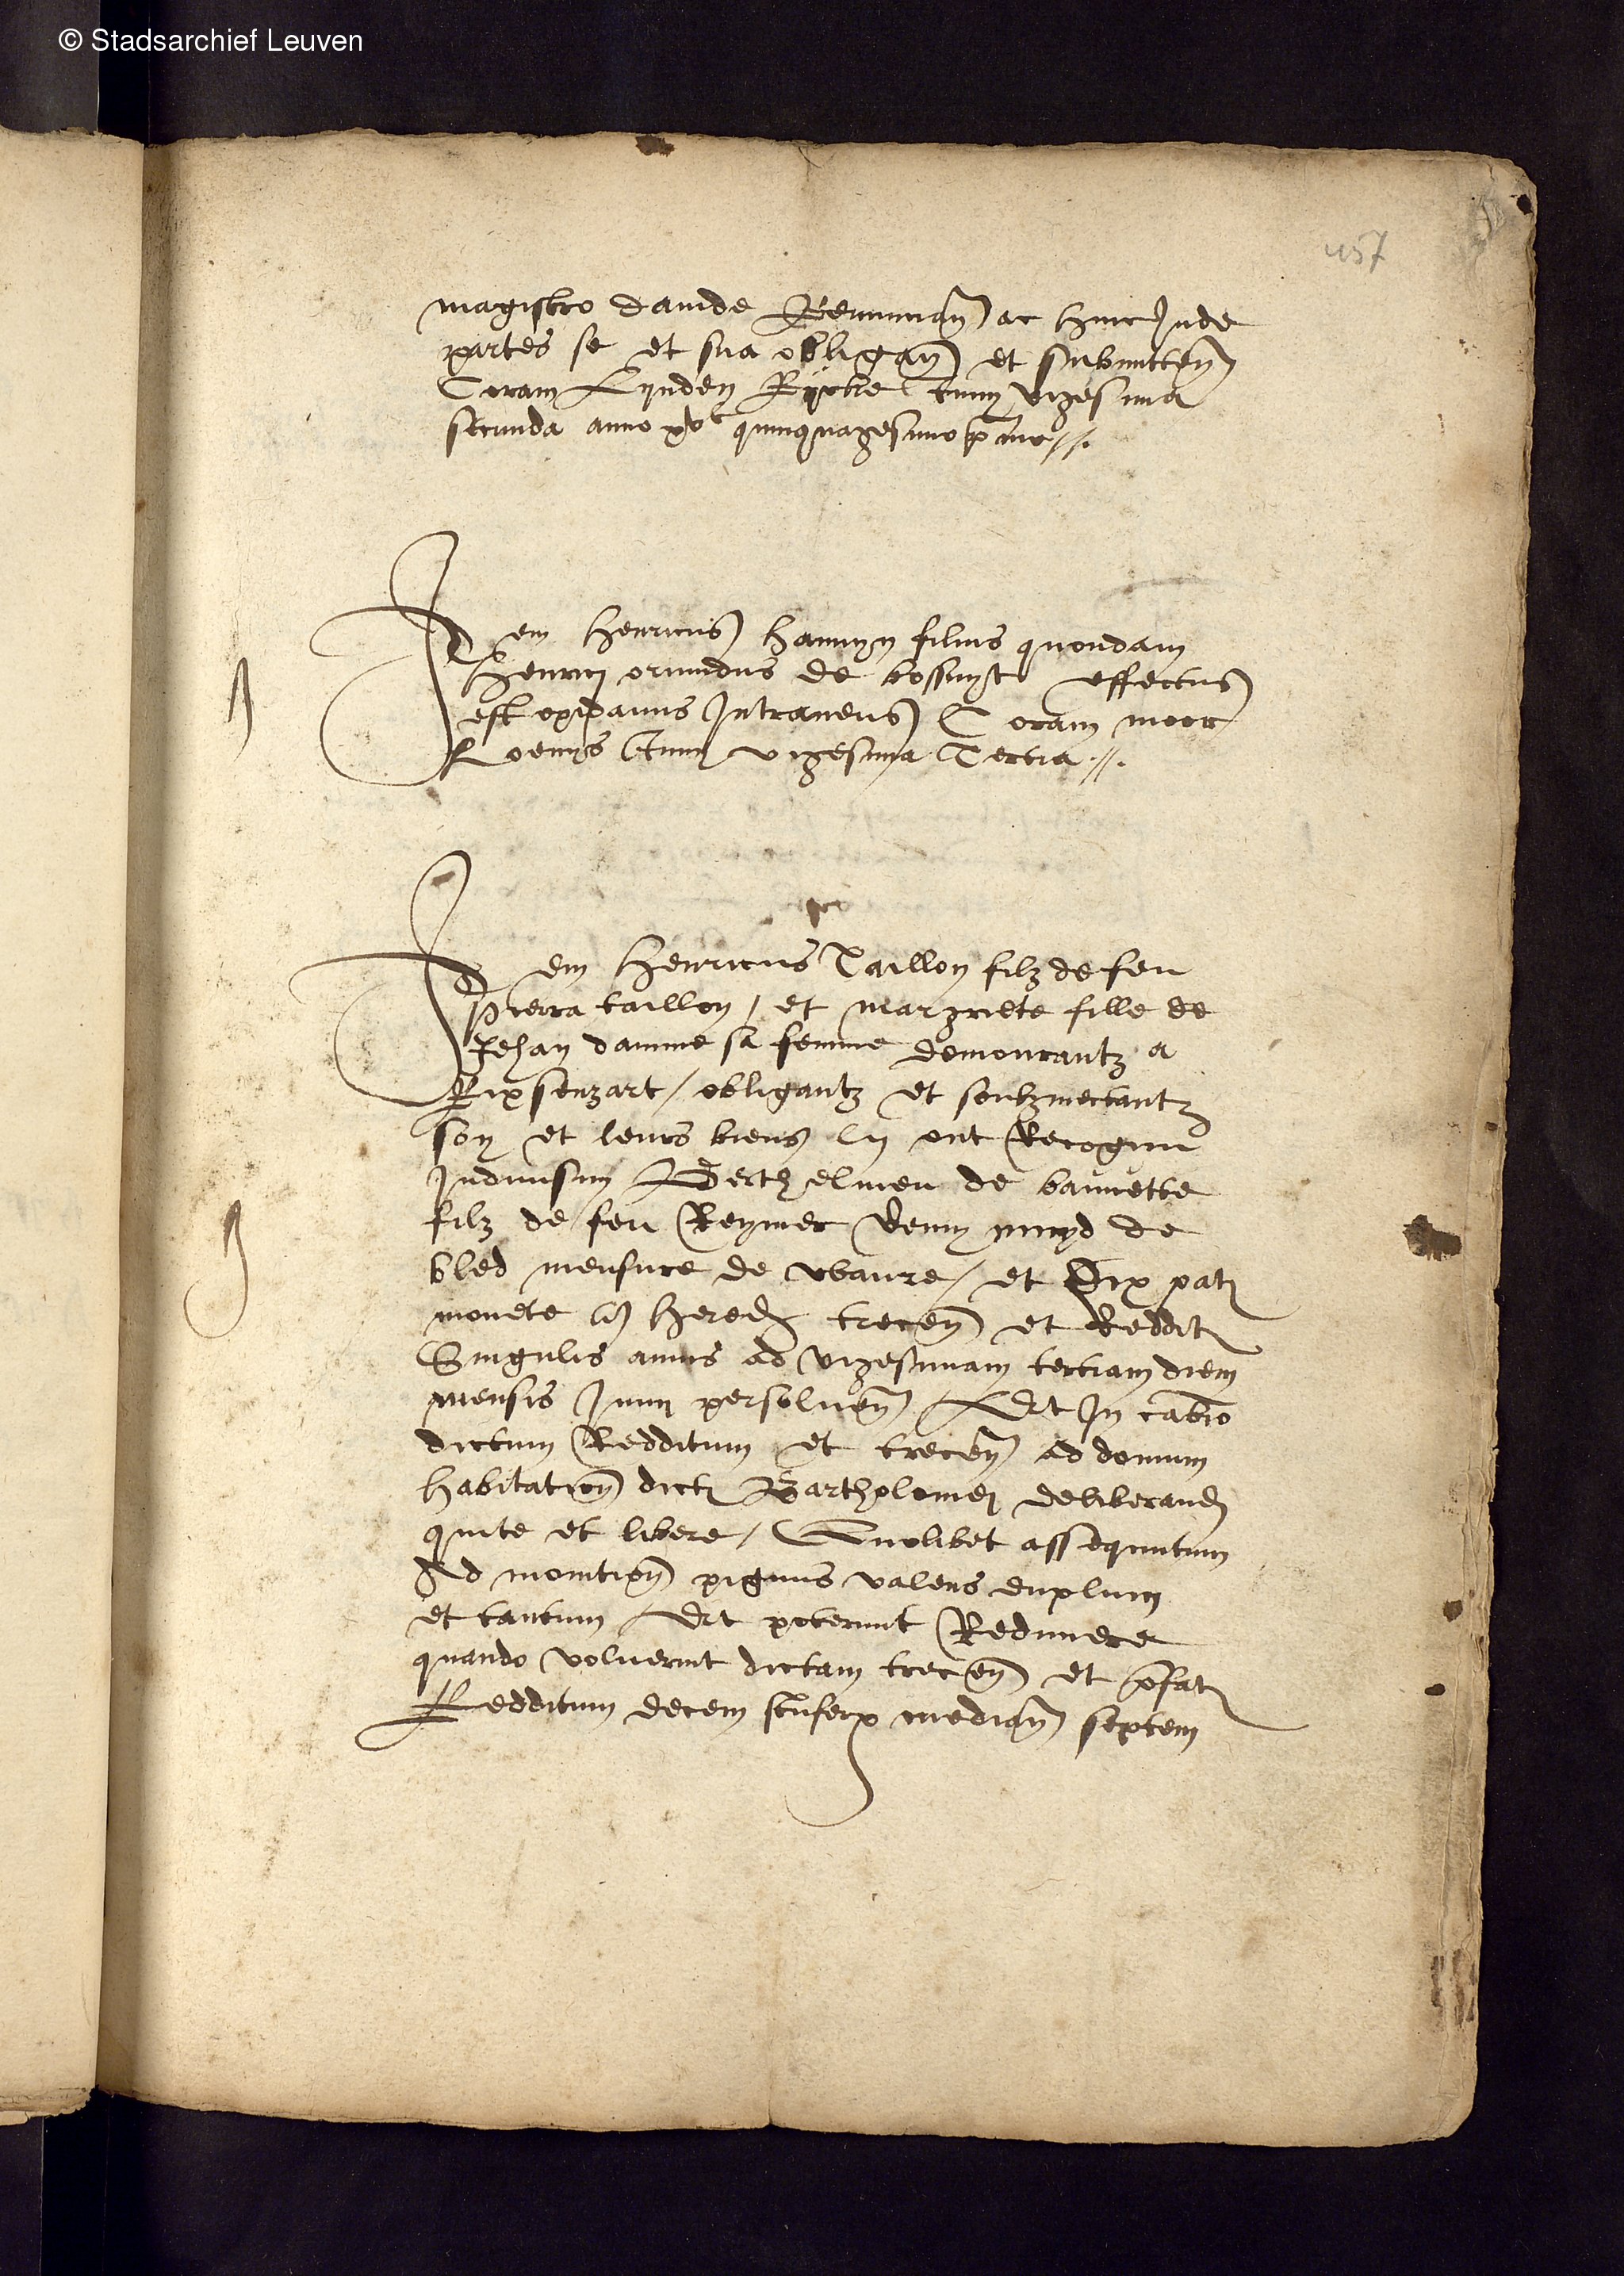 © Stadsarchief Leuven
457
magistro davide Renuncian ac hinc Inde
partes se et sua obligan et submitten
Coram Lynden Rycke Junii vigesima
secunda anno xvc quinquagesimo primo //.
Item Henricus hannyn filius quondam
Henrici oriundus de bossuyt effectus
est oppidanus Intraneus Coram moer
Roelofs Junii vigesima Tertia //.
Item Henricus Taillon filz de feu
Pierra taillon / et margriete fille de
Jehan damme sa femme demourantz a
Rixsenzart / obligantz et soubzmectantz
soy et leurs biens ly ont Recognu
Indivisim Berthelmeu de bauvette
filz de feu Reymer demy muyd de
bled mensure de wavre / et Dix pat
monete hered trecen et Reddit
Singulis annis ad vigesimam tertiam diem
mensis Junii persolven Et In
dictum Redditum et trecen ad domum
habitation dicti Bartholomei deliberand
quite et libere / Quolibet assequutum
Ad monition pignus valens duplum
et tantum Et poterunt Redimere
quando voluerint dictam trecen et prefat
Redditum decem stuferorum median septem